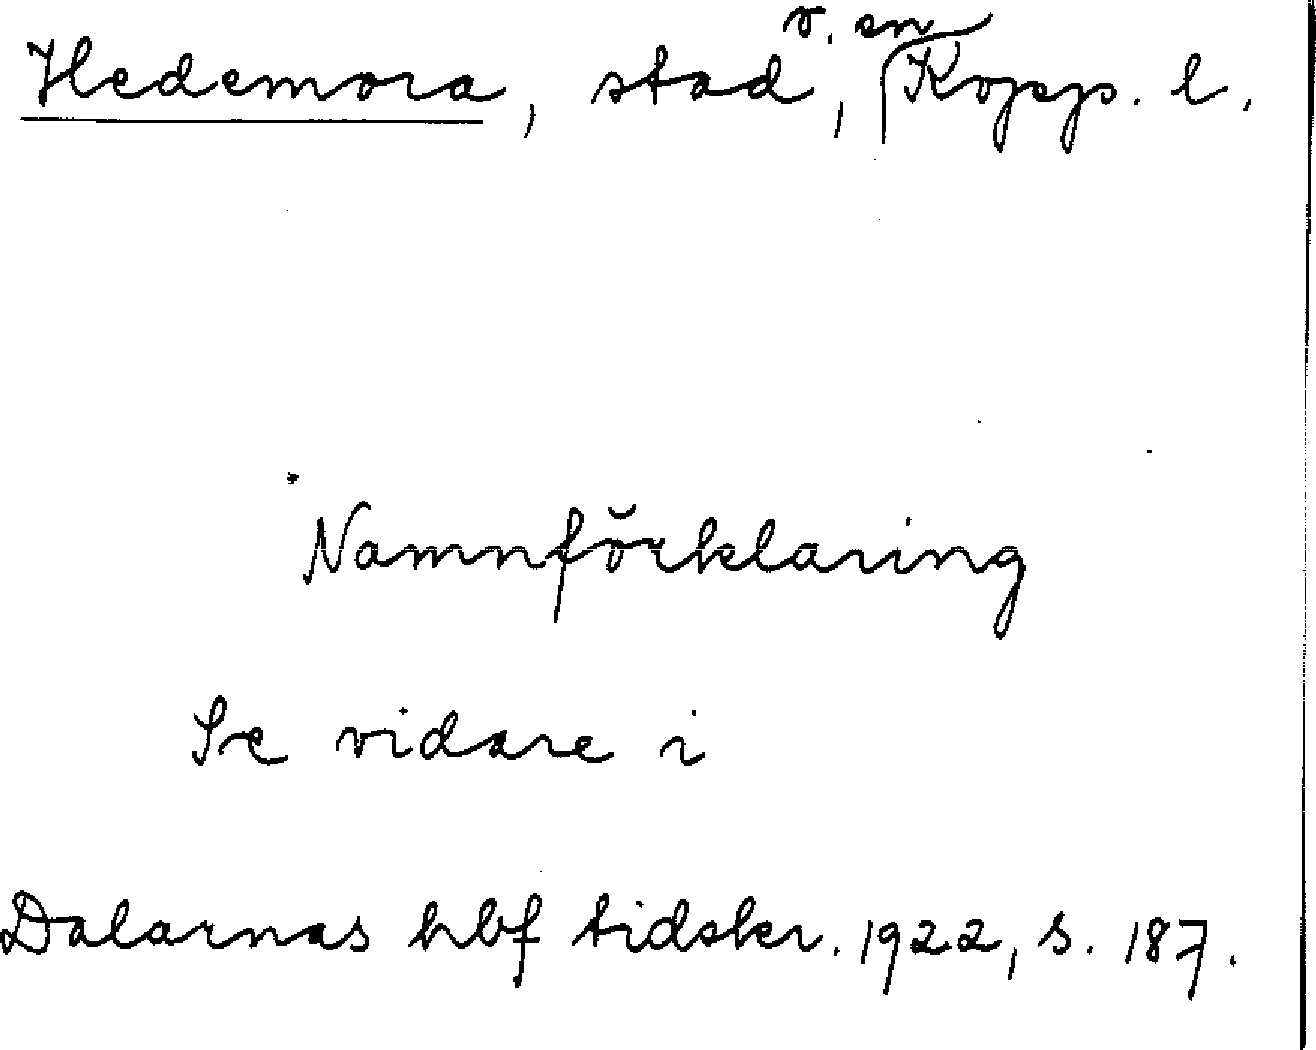 Hedemora, stad, Kopp. l.
Namnförklaring
Se vidare i
Dalarnas hbf tidskr. 1922, s. 187.